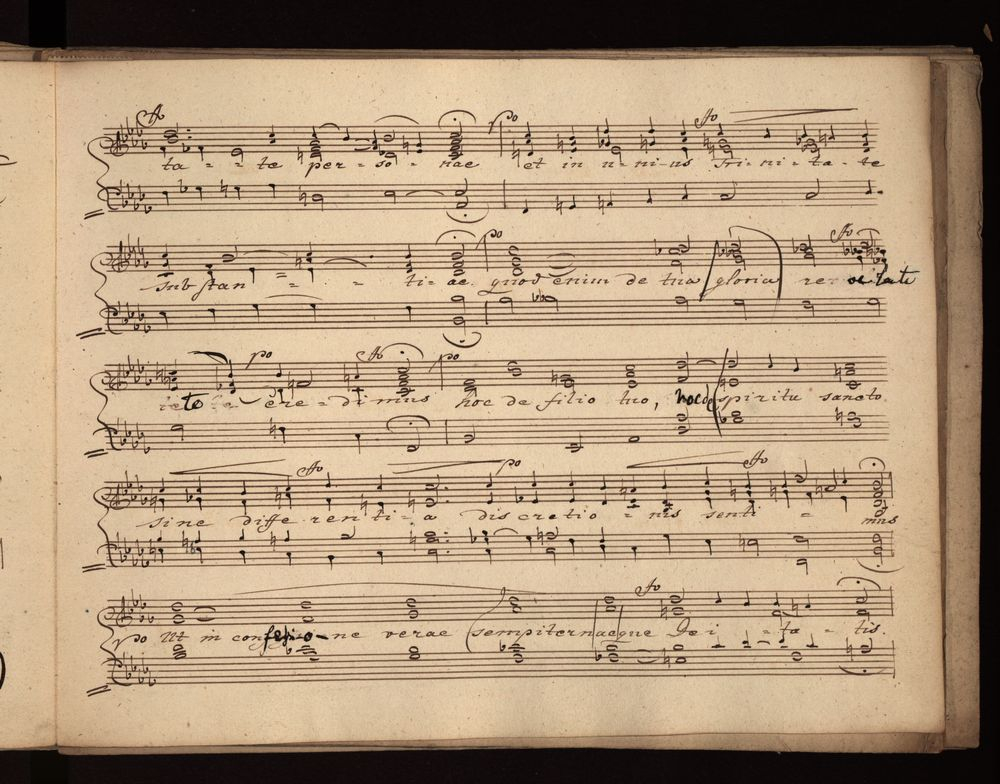 fo po fo
ta - - tae per - so - nae et in u - ni - us Tri - ni - ta - te
po fo
substan - - - ti - ae. quod enim de tua gloria re ve lante
po fo po
te cre - di mus hoc de filio tuo, hoc de spiritu sancto
fo po fo
sine diffe renti - a discretio - nis senti - mus
fo
po Ut in confessio - ne verae sempiternaeque Dei - ta - tis.